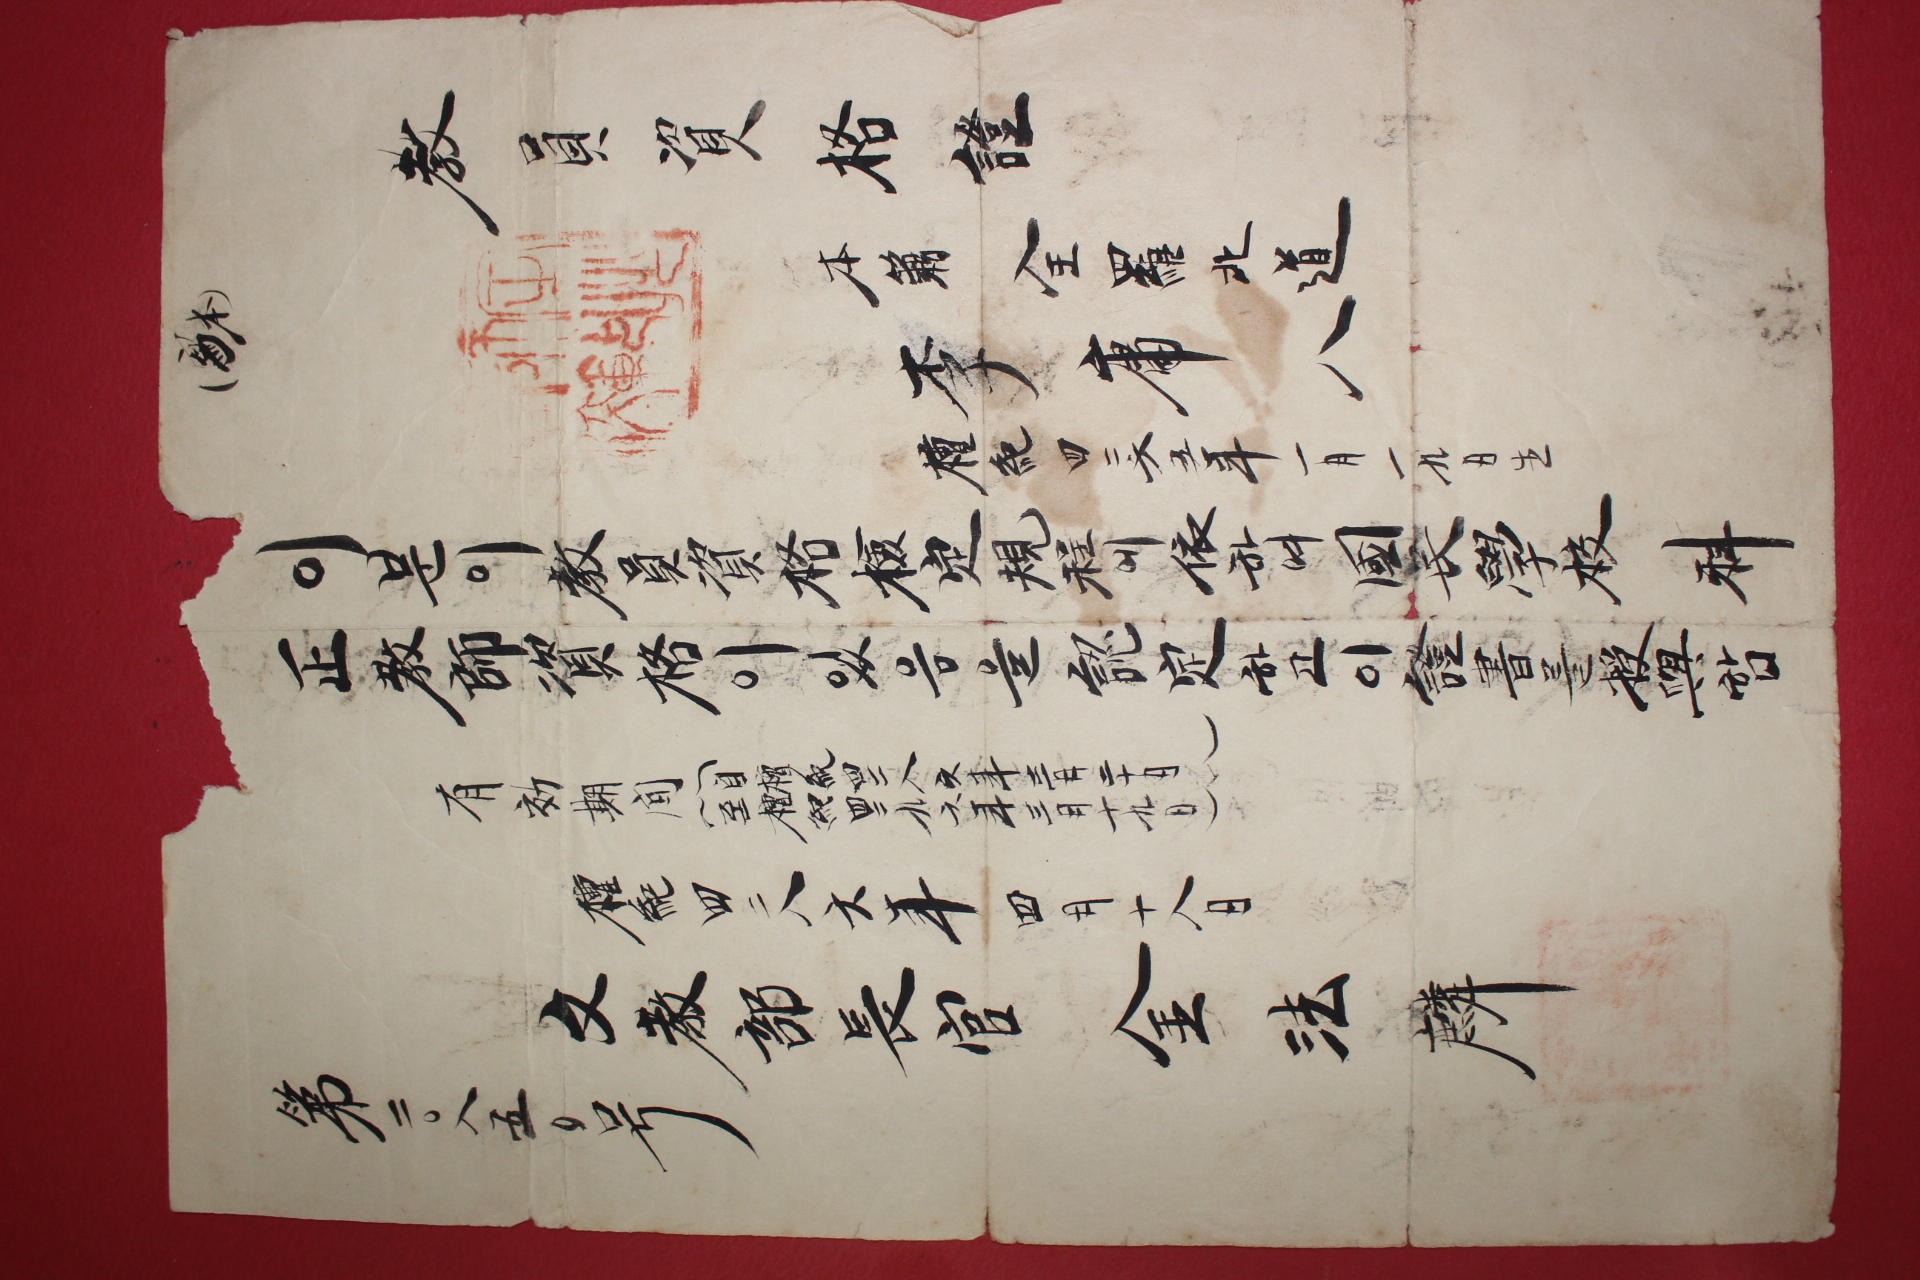 (寫本)
教員資格證
本籍 全羅北道
李庸八
檀紀四二六五年一月一九日生
이분이敎員資格檢定規程에依하여國民學校 科
正敎師資格이있음을認定하고이證書를授與함
有効期间
(自檀紀四二八六年三月二十日
至檀紀四二九六年三月十九日)
檀紀四二八六年四月十八日
文敎部長官 金法麟
第二○八五○号